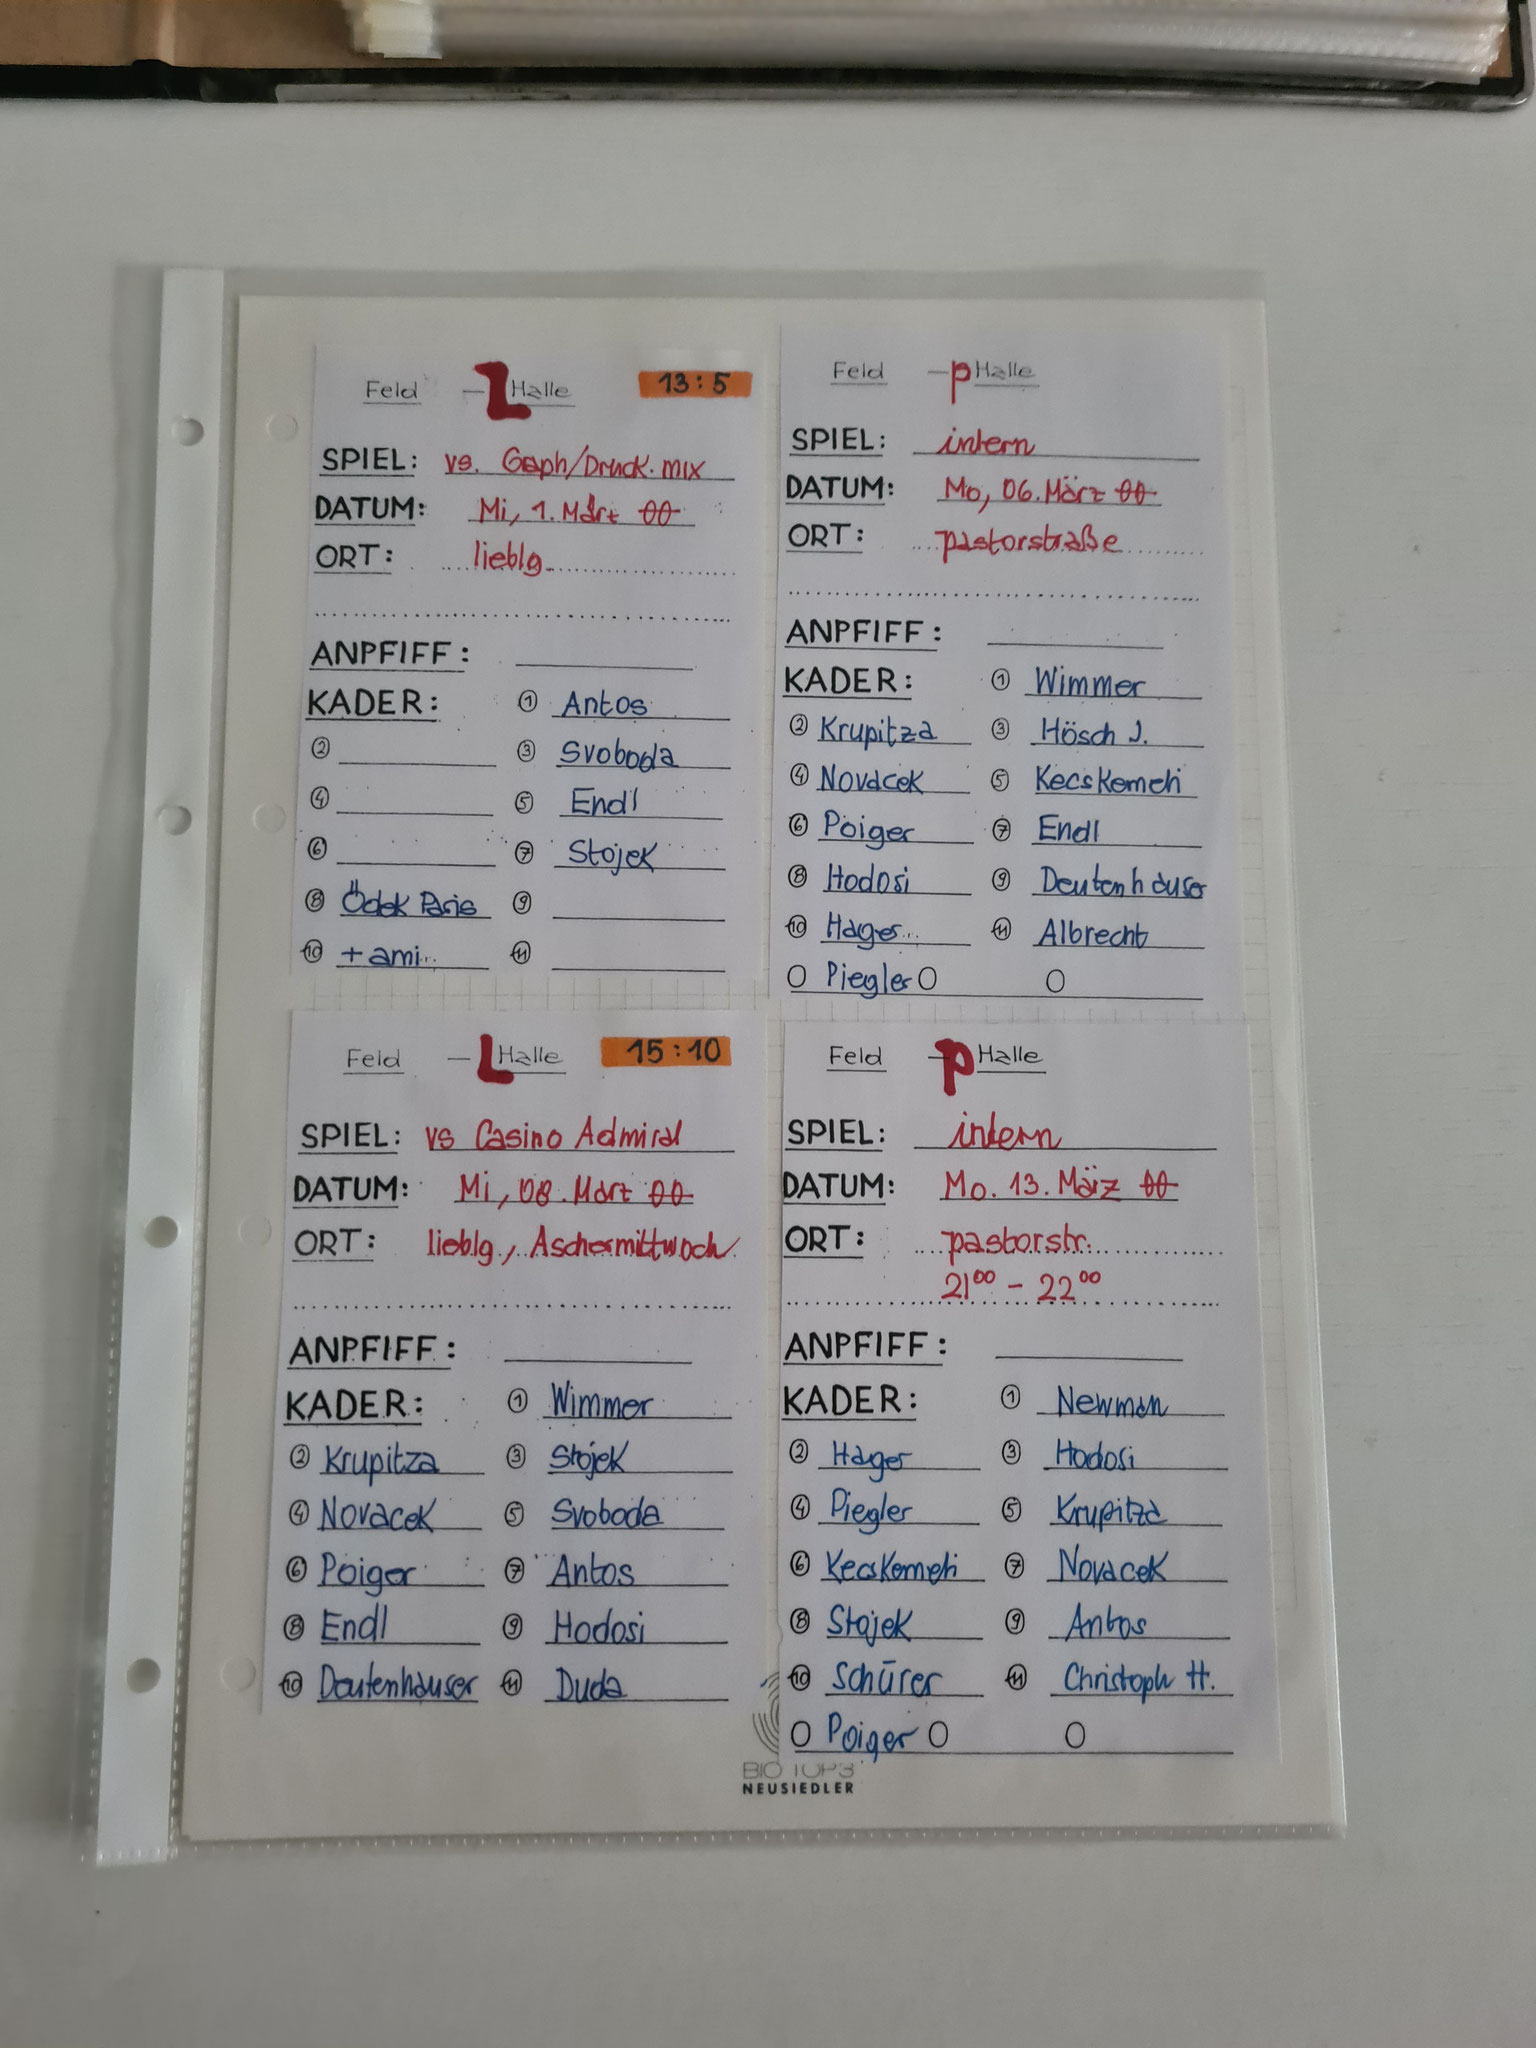 Feld - L Halle 13:5
SPIEL: vs. Gaph/Druck. mix
DATUM: Mi, 1. März 00
ORT: lieblg.
ANPFIFF:
KADER: 1 Antos
2 3 Svoboda
4 5 Endl
6 7 Stojek
8 Ödek Paris 9
10 + ami.. 11
Feld - p Halle
SPIEL: intern
DATUM: Mo, 06. März 00
ORT: pastorstraße
ANPFIFF:
KADER: 1 Wimmer
2 Krupitza 3 Hösch J.
4 Novacek 5 Kecskemeti
6 Poiger 7 Endl
8 Hodosi 9 Deutenhauser
10 Hager 11 Albrecht
O Piegler O O
Feld - L Halle 15:10
SPIEL: vs Casino Admiral
DATUM: Mi, 08. März 00
ORT: lieblg., Aschermittwoch
ANPFIFF:
KADER: 1 Wimmer
2 Krupitza 3 Stojek
4 Novacek 5 Svoboda
6 Poiger 7 Antos
8 Endl 9 Hodosi
10 Deutenhauser 11 Duda
Feld - p Halle
SPIEL: intern
DATUM: Mo. 13. März 00
ORT: pastorstr.
21⁰⁰ - 22⁰⁰
ANPFIFF:
KADER: 1 Newman
2 Hager 3 Hodosi
4 Piegler 5 Krupitza
6 Kecskemeti 7 Novacek
8 Stojek 9 Antos
10 Schürer 11 Christoph H.
O Poiger O O
BIO TOP3
NEUSIEDLER